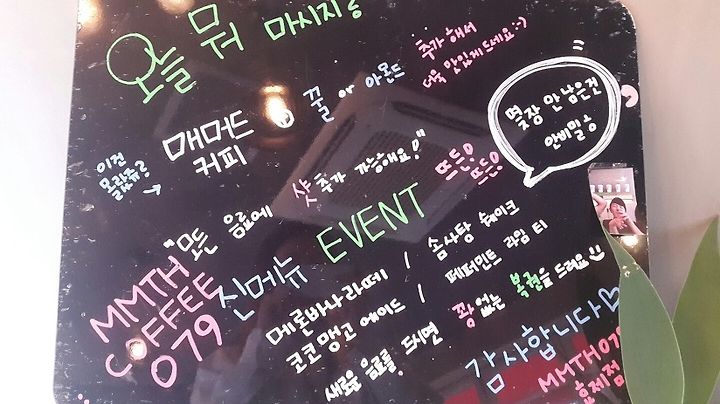 오늘 뭐 마시지?
추가해서
더욱 맛있게 드세요 :-)
꿀 or 아몬드
매머드
커피
이건
몰랐쥬?
몇장 안 남은건
안비밀
"모든 음료에 샷 추가 가능해요!"
뜨든!
뜨든!
MMTH
COFFEE
079
신메뉴 EVENT
메론바나라떼 / 솜사탕 쉐이크
코코맹고 에이드 / 페퍼민트 라임 티
새로운 음료를 드시면 꽝 없는 복권을 드려요
감사합니다♡
MMTH079
효제점